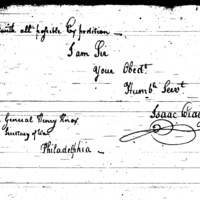 with all possible Expedition
I am Sir
Your Obedt
Humble Servt
Isaac Craig
General Henry Knox
Secretary of War
Philadelphia